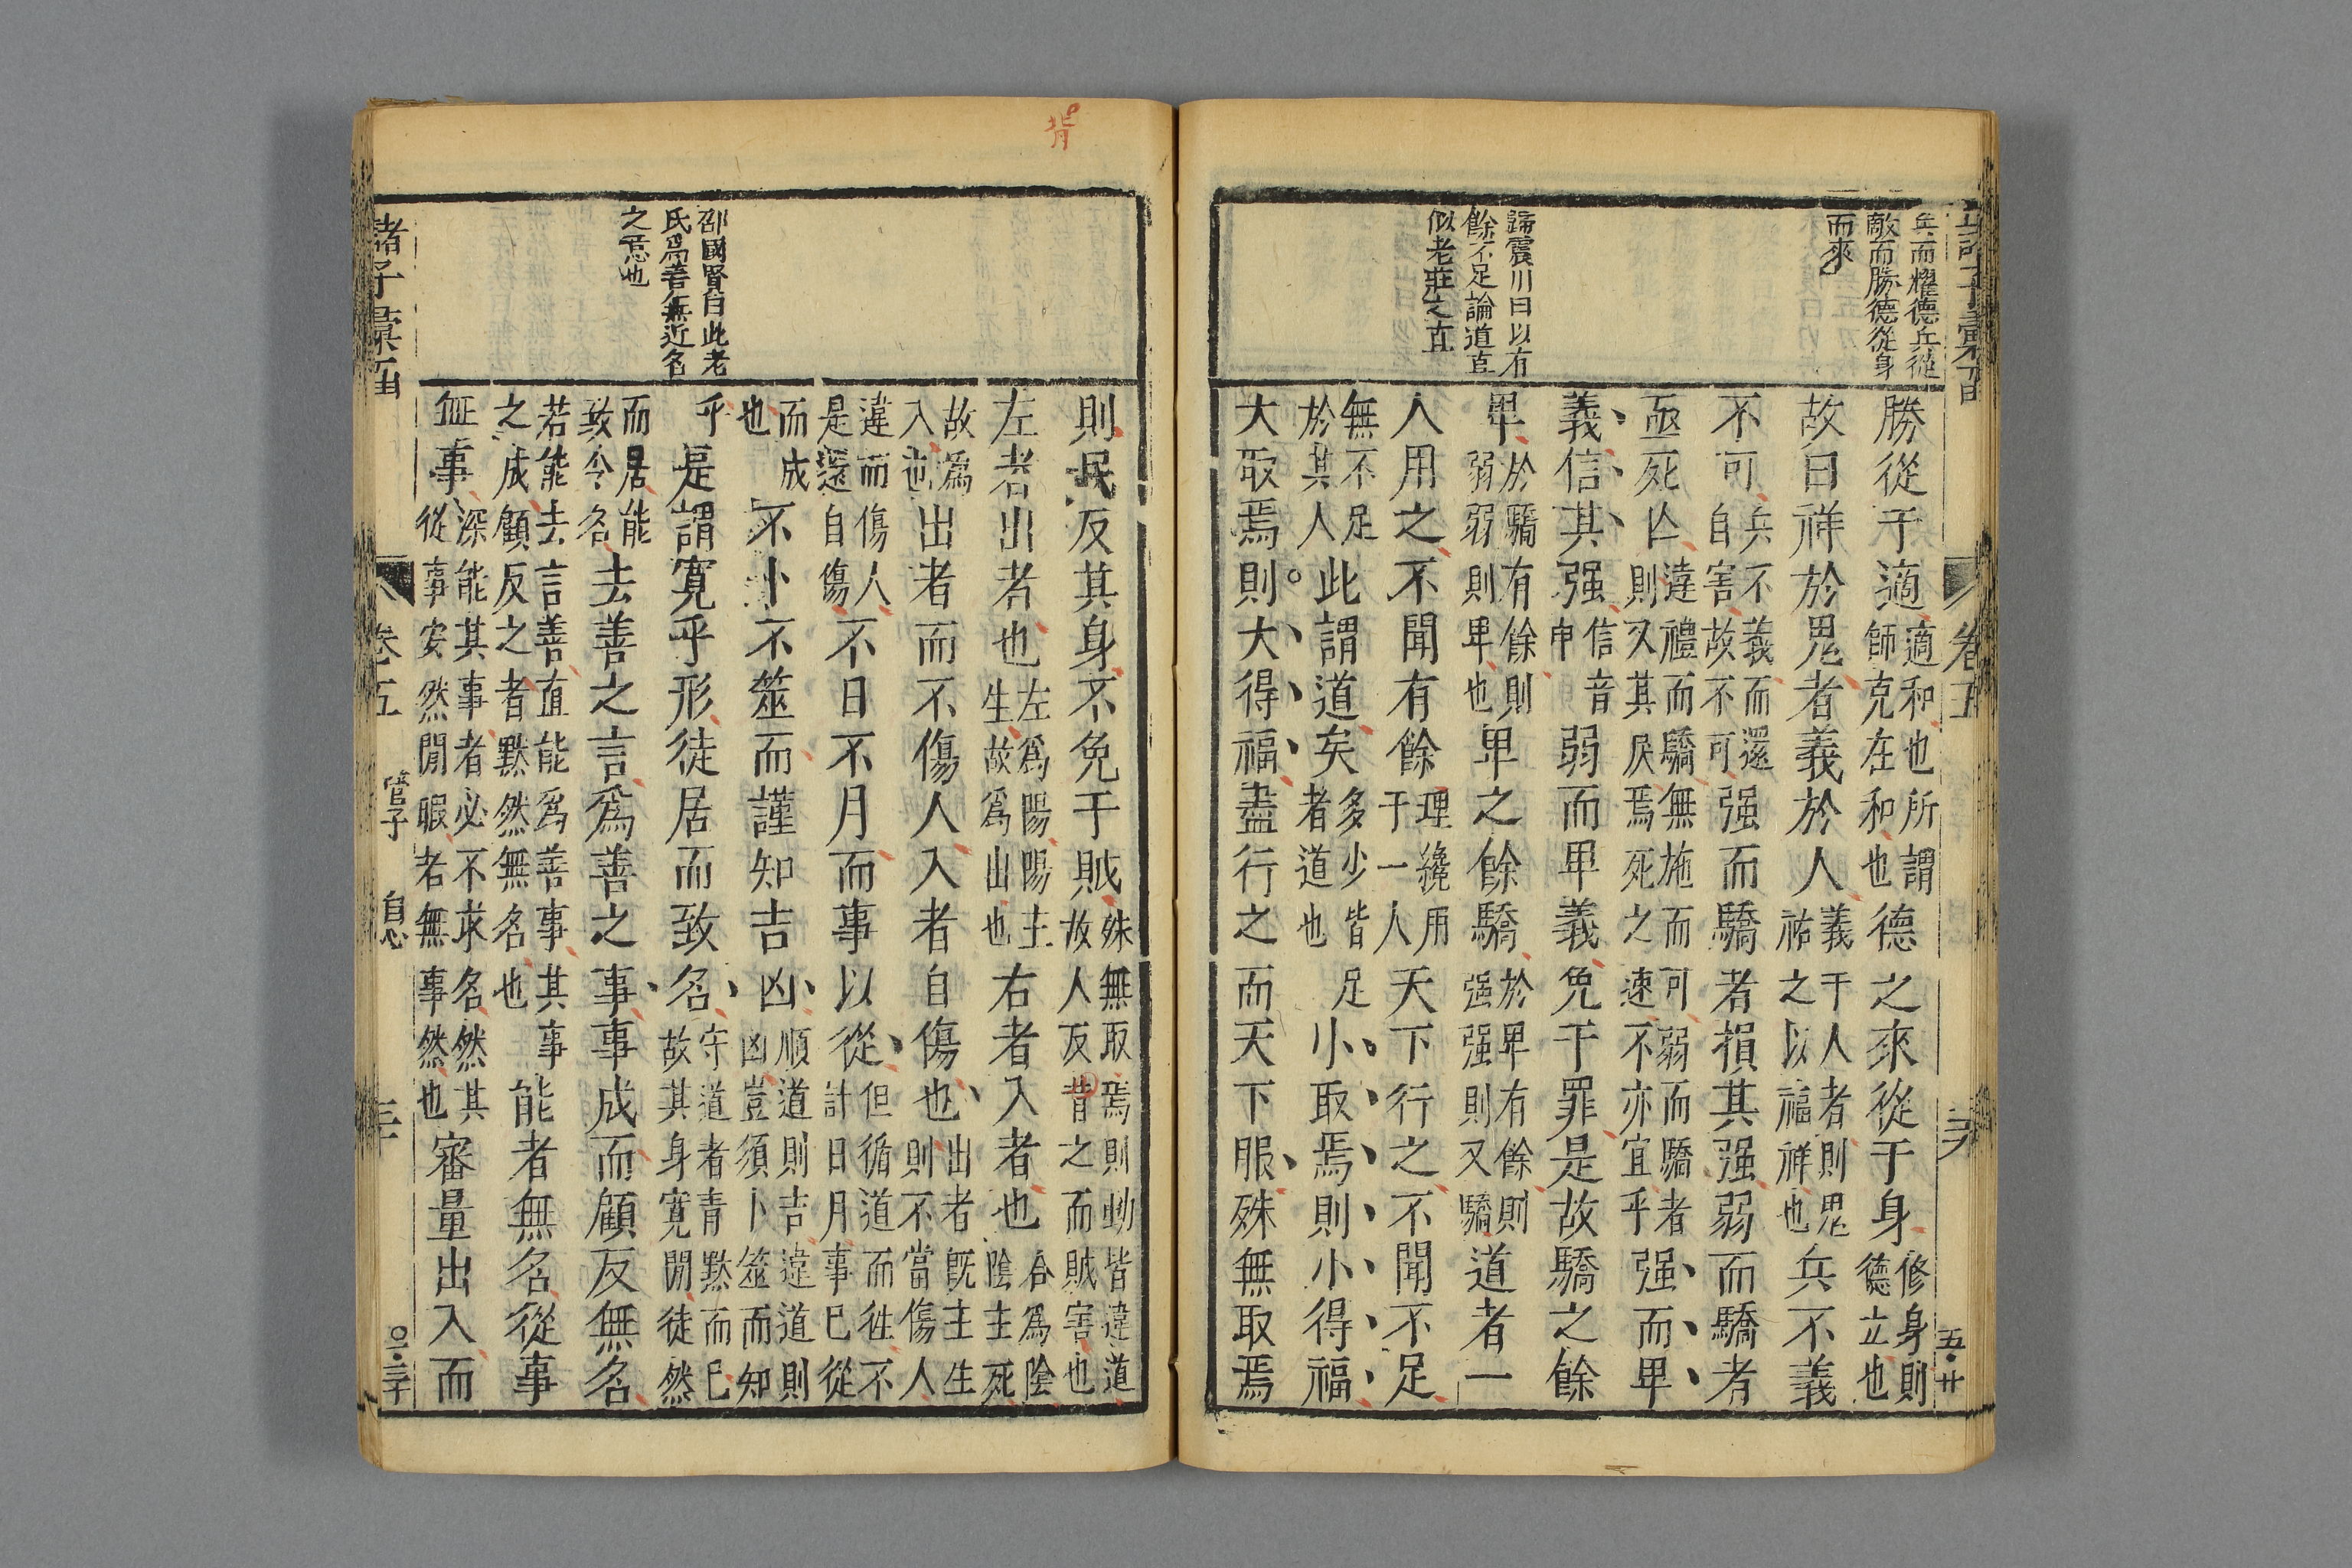 諸子彙函 卷五 五·廿
兵而耀德兵從
敵而勝德從身
而來
歸震川曰以有
餘不足論道直
似老莊之直
勝從于適適和也所謂師克在和也德之來從于身修身則德立也
故曰祥於鬼者義於人義于人者則鬼祐之以福祥也兵不義
不可兵不義而還自害故不可强而驕者損其强弱而驕者
亟死亡違禮而驕無施而可弱而驕者則又其戾焉死之速不亦宜乎强而卑
義信其强信音申弱而卑義免于罪是故驕之餘
卑於驕有餘則弱弱則卑也卑之餘驕於卑有餘則强强則又驕道者一
人用之不聞有餘理纔用于一人天下行之不聞不足
無不足於其人此謂道矣多少皆足者道也小取焉則小得福
大取焉則大得福盡行之而天下服殊無取焉
背
邵國賢曰此老
氏爲善無近名
之意也
則民反其身不免于賊殊無取焉則動皆違道故人反背之而賊害也
左者出者也左爲陽陽主生故爲出也右者入者也右爲陰陰主死
故爲入也出者而不傷人入者自傷也出者既主生則不當傷人
違而傷人是還自傷不日不月而事以從但循道而往不計日月事已從
而成也不卜不筮而謹知吉凶順道則吉違道則凶豈須卜筮而知
乎是謂寛乎形徒居而致名守道者青黙而已故其身寛閒徒然
而居能致令名去善之言爲善之事事成而顧反無名
若能去言善直能爲善事其事之成顧反之者黙然無名也能者無名從事
無事深能其事者必不求名然其從事安然閒暇者無事然也審量出入而
諸子彙函 卷五 管子 三十